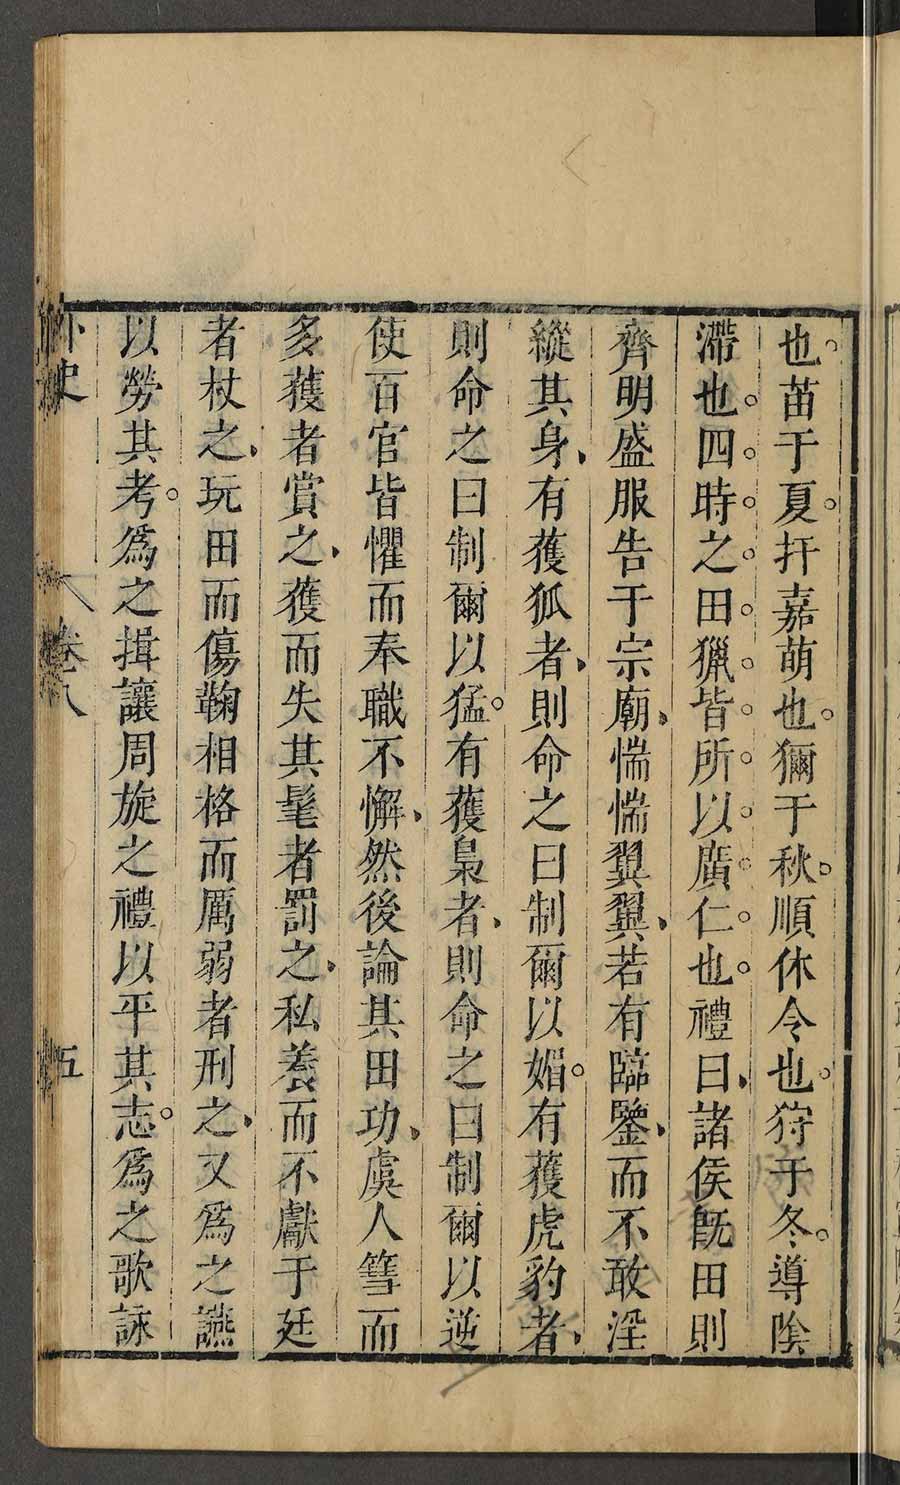 也。苗于夏。扞嘉萌也。獮于秋。順休令也。狩于冬。導陰
滯也。四。時。之。田。獵。皆。所。以。廣。仁。也。禮曰、諸侯旣田則
齊明盛服告于宗廟、惴惴翼翼、若有臨鑒、而不敢淫
縱其身、有獲狐者、則命之曰制爾以媚。有獲虎豹者、
則命之曰制爾以猛。有獲梟者、則命之曰制爾以逆
使百官皆懼而奉職不懈、然後論其田功、虞人簪而
多獲者賞之、獲而失其髦者罰之、私養而不獻于廷
者杖之、玩田而傷鞠相格而厲弱者刑之、又爲之讌
以勞其考。爲之揖讓周旋之禮以平其志。爲之歌詠
外史
卷八
五